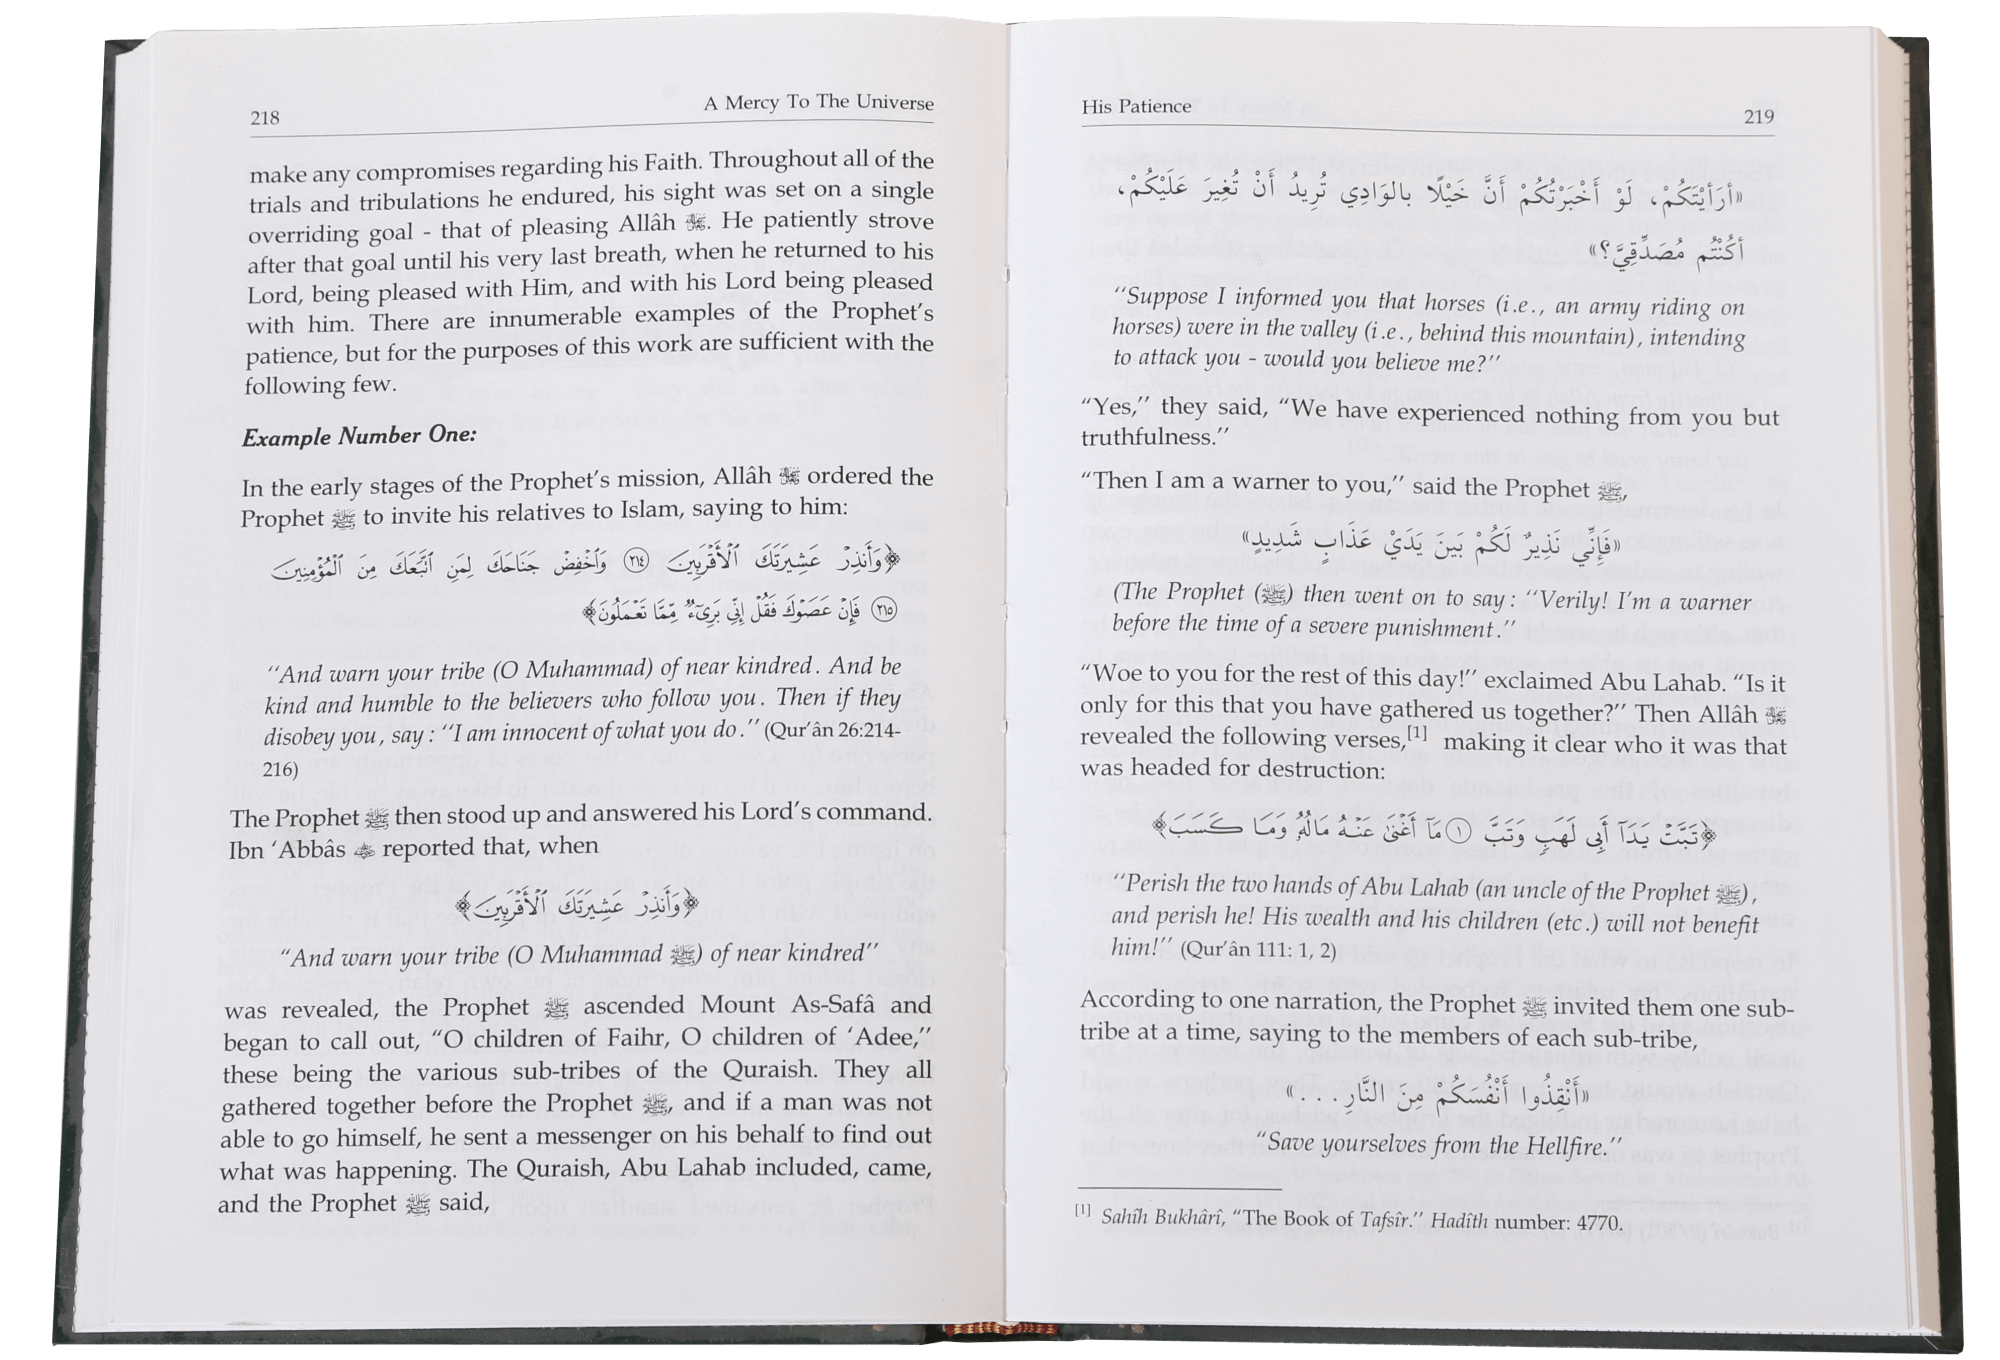 218
A Mercy To The Universe
make any compromises regarding his Faith. Throughout all of the
trials and tribulations he endured, his sight was set on a single
overriding goal - that of pleasing Allâh ﷻ. He patiently strove
after that goal until his very last breath, when he returned to his
Lord, being pleased with Him, and with his Lord being pleased
with him. There are innumerable examples of the Prophet's
patience, but for the purposes of this work are sufficient with the
following few.
Example Number One:
In the early stages of the Prophet's mission, Allâh ﷻ ordered the
Prophet ﷺ to invite his relatives to Islam, saying to him:
﴿وَأَنذِرْ عَشِيرَتَكَ ٱلْأَقْرَبِينَ ٢١٤ وَٱخْفِضْ جَنَاحَكَ لِمَنِ ٱتَّبَعَكَ مِنَ ٱلْمُؤْمِنِينَ
٢١٥ فَإِنْ عَصَوْكَ فَقُلْ إِنِّى بَرِىٓءٌ مِّمَّا تَعْمَلُونَ﴾
“And warn your tribe (O Muhammad) of near kindred. And be
kind and humble to the believers who follow you. Then if they
disobey you, say: “I am innocent of what you do.” (Qur’ân 26:214-
216)
The Prophet ﷺ then stood up and answered his Lord's command.
Ibn ‘Abbâs reported that, when
﴿وَأَنذِرْ عَشِيرَتَكَ ٱلْأَقْرَبِينَ﴾
“And warn your tribe (O Muhammad ﷺ) of near kindred”
was revealed, the Prophet ﷺ ascended Mount As-Safâ and
began to call out, “O children of Faihr, O children of ‘Adee,”
these being the various sub-tribes of the Quraish. They all
gathered together before the Prophet ﷺ, and if a man was not
able to go himself, he sent a messenger on his behalf to find out
what was happening. The Quraish, Abu Lahab included, came,
and the Prophet ﷺ said,
His Patience
219
«أرَأيْتَكُمْ، لَوْ أَخْبَرْتُكُمْ أَنَّ خَيْلًا بالوَادِي تُرِيدُ أَنْ تُغِيَرَ عَلَيْكُمْ،
أكُنْتُم مُصَدِّقِيَّ؟»
“Suppose I informed you that horses (i.e., an army riding on
horses) were in the valley (i.e., behind this mountain), intending
to attack you - would you believe me?”
“Yes,” they said, “We have experienced nothing from you but
truthfulness.”
“Then I am a warner to you,” said the Prophet ﷺ,
«فَإِنِّي نَذِيرٌ لَكُمْ بَينَ يَدَيْ عَذَابٍ شَدِيدٍ»
(The Prophet (ﷺ) then went on to say: “Verily! I'm a warner
before the time of a severe punishment.”
“Woe to you for the rest of this day!” exclaimed Abu Lahab. “Is it
only for this that you have gathered us together?” Then Allâh ﷻ
revealed the following verses,[1] making it clear who it was that
was headed for destruction:
﴿تَبَّتْ يَدَآ أَبِى لَهَبٍ وَتَبَّ ١ مَآ أَغْنَىٰ عَنْهُ مَالُهُۥ وَمَا كَسَبَ﴾
“Perish the two hands of Abu Lahab (an uncle of the Prophet ﷺ),
and perish he! His wealth and his children (etc.) will not benefit
him!” (Qur’ân 111: 1, 2)
According to one narration, the Prophet ﷺ invited them one sub-
tribe at a time, saying to the members of each sub-tribe,
«أَنْقِذُوا أَنْفُسَكُمْ مِنَ النَّارِ. . .»
“Save yourselves from the Hellfire.”
[1] Sahîh Bukhârî, “The Book of Tafsîr.” Hadîth number: 4770.